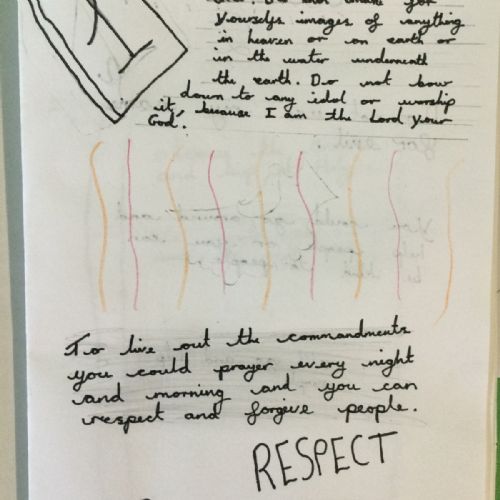 yourselfs images of anything
in heaven or on earth or
in the water underneath
the earth. Do not bow
down to any idol or worship
it, because I am the Lord your
God.
To live out the commandments
you could prayer every night
and morning and you can
respect and forgive people.
RESPECT